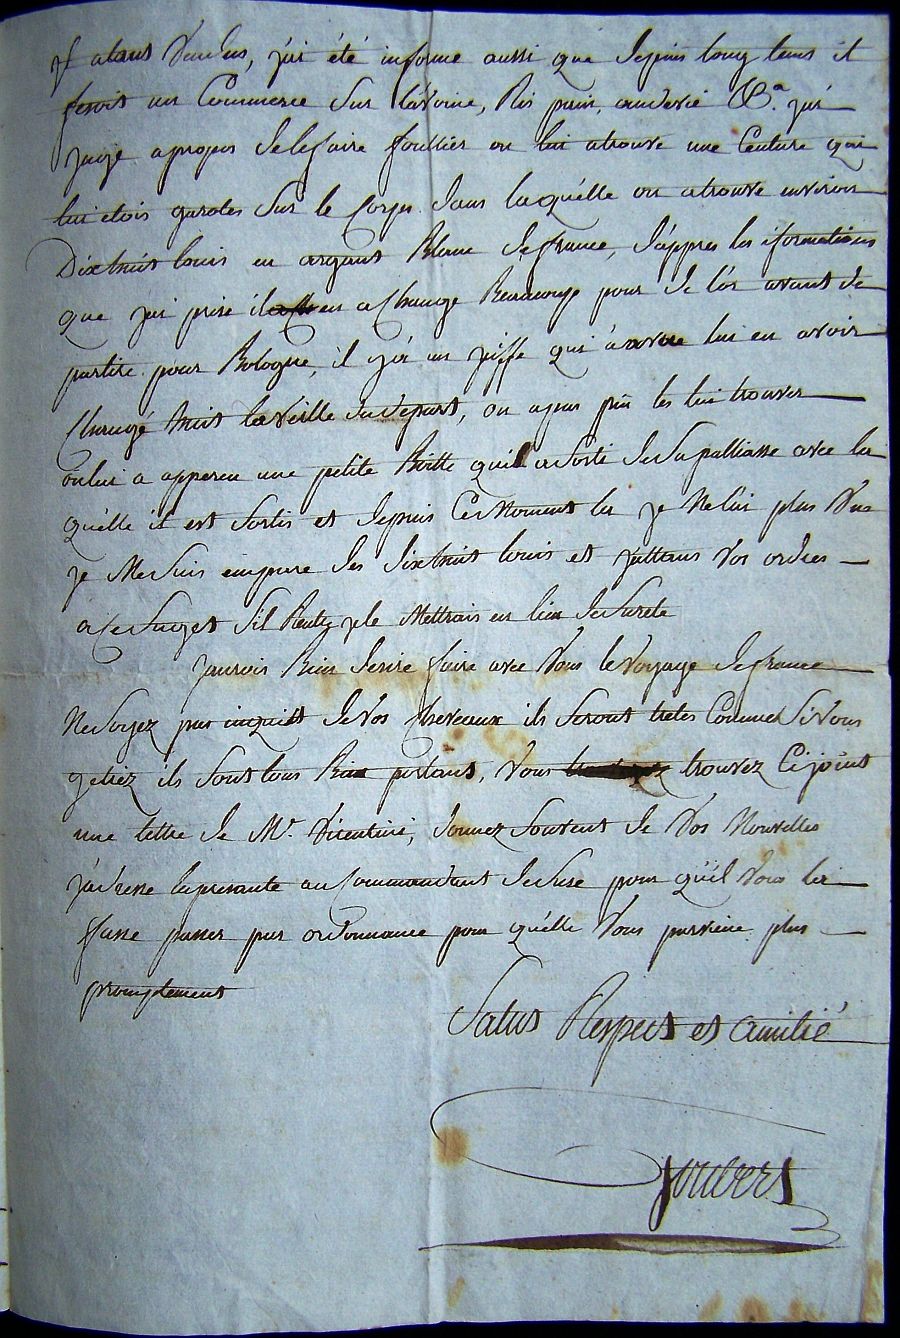 atans Vendus, j'ai été informé aussi que depuis long tems il
fesoit un Commerce Sur l'avoine, Ris pain, eaudevie &&.a j'ai
juge apropos de le faire foullier on lui atrouvé une Centure qui
lui etois garotés Sur le Corps dans laquélle on atrouvé environ
Dixhuit louis en argans Blanc de france, d'appres les iformations
que jai prise il en a Change Beaucoup pour de l'or avant de
partire pour Bologne, il y'a un juiffe qui à avoué lui en avoir
Changé huit laveille du départ, on apas pûs les lui trouver
on lui a apperçu une petite Boitte quil asorti de Sa palliasse avec la
quélle il est Sortis et depuis Ces Moment la je Ne lai plus Vus
je Me Suis empare des dixhuit louis et j'attans Vos ordres
a Ce Sujet S'il Rentre je le Mettrais en lieu de Sureté
jaurois Bien desiré faire avec Vous le Voyage de france
Ne Soyez pas inquiet de Vos Chevaux ils Seront tretés Comme Si Vous
y etiez ils Sont tous Bien portans, Vous trouvez Cijoint
une lettre de Mr. Vicentini, donnez Souvent de Vos Nouvelles
j'adresse la presente au Commandant de Suse pour qu'il Vous la
fasse passer par ordonnance pour qu'élle Vous parviene plus
promptement
Salut Respect et amitié
Joubert